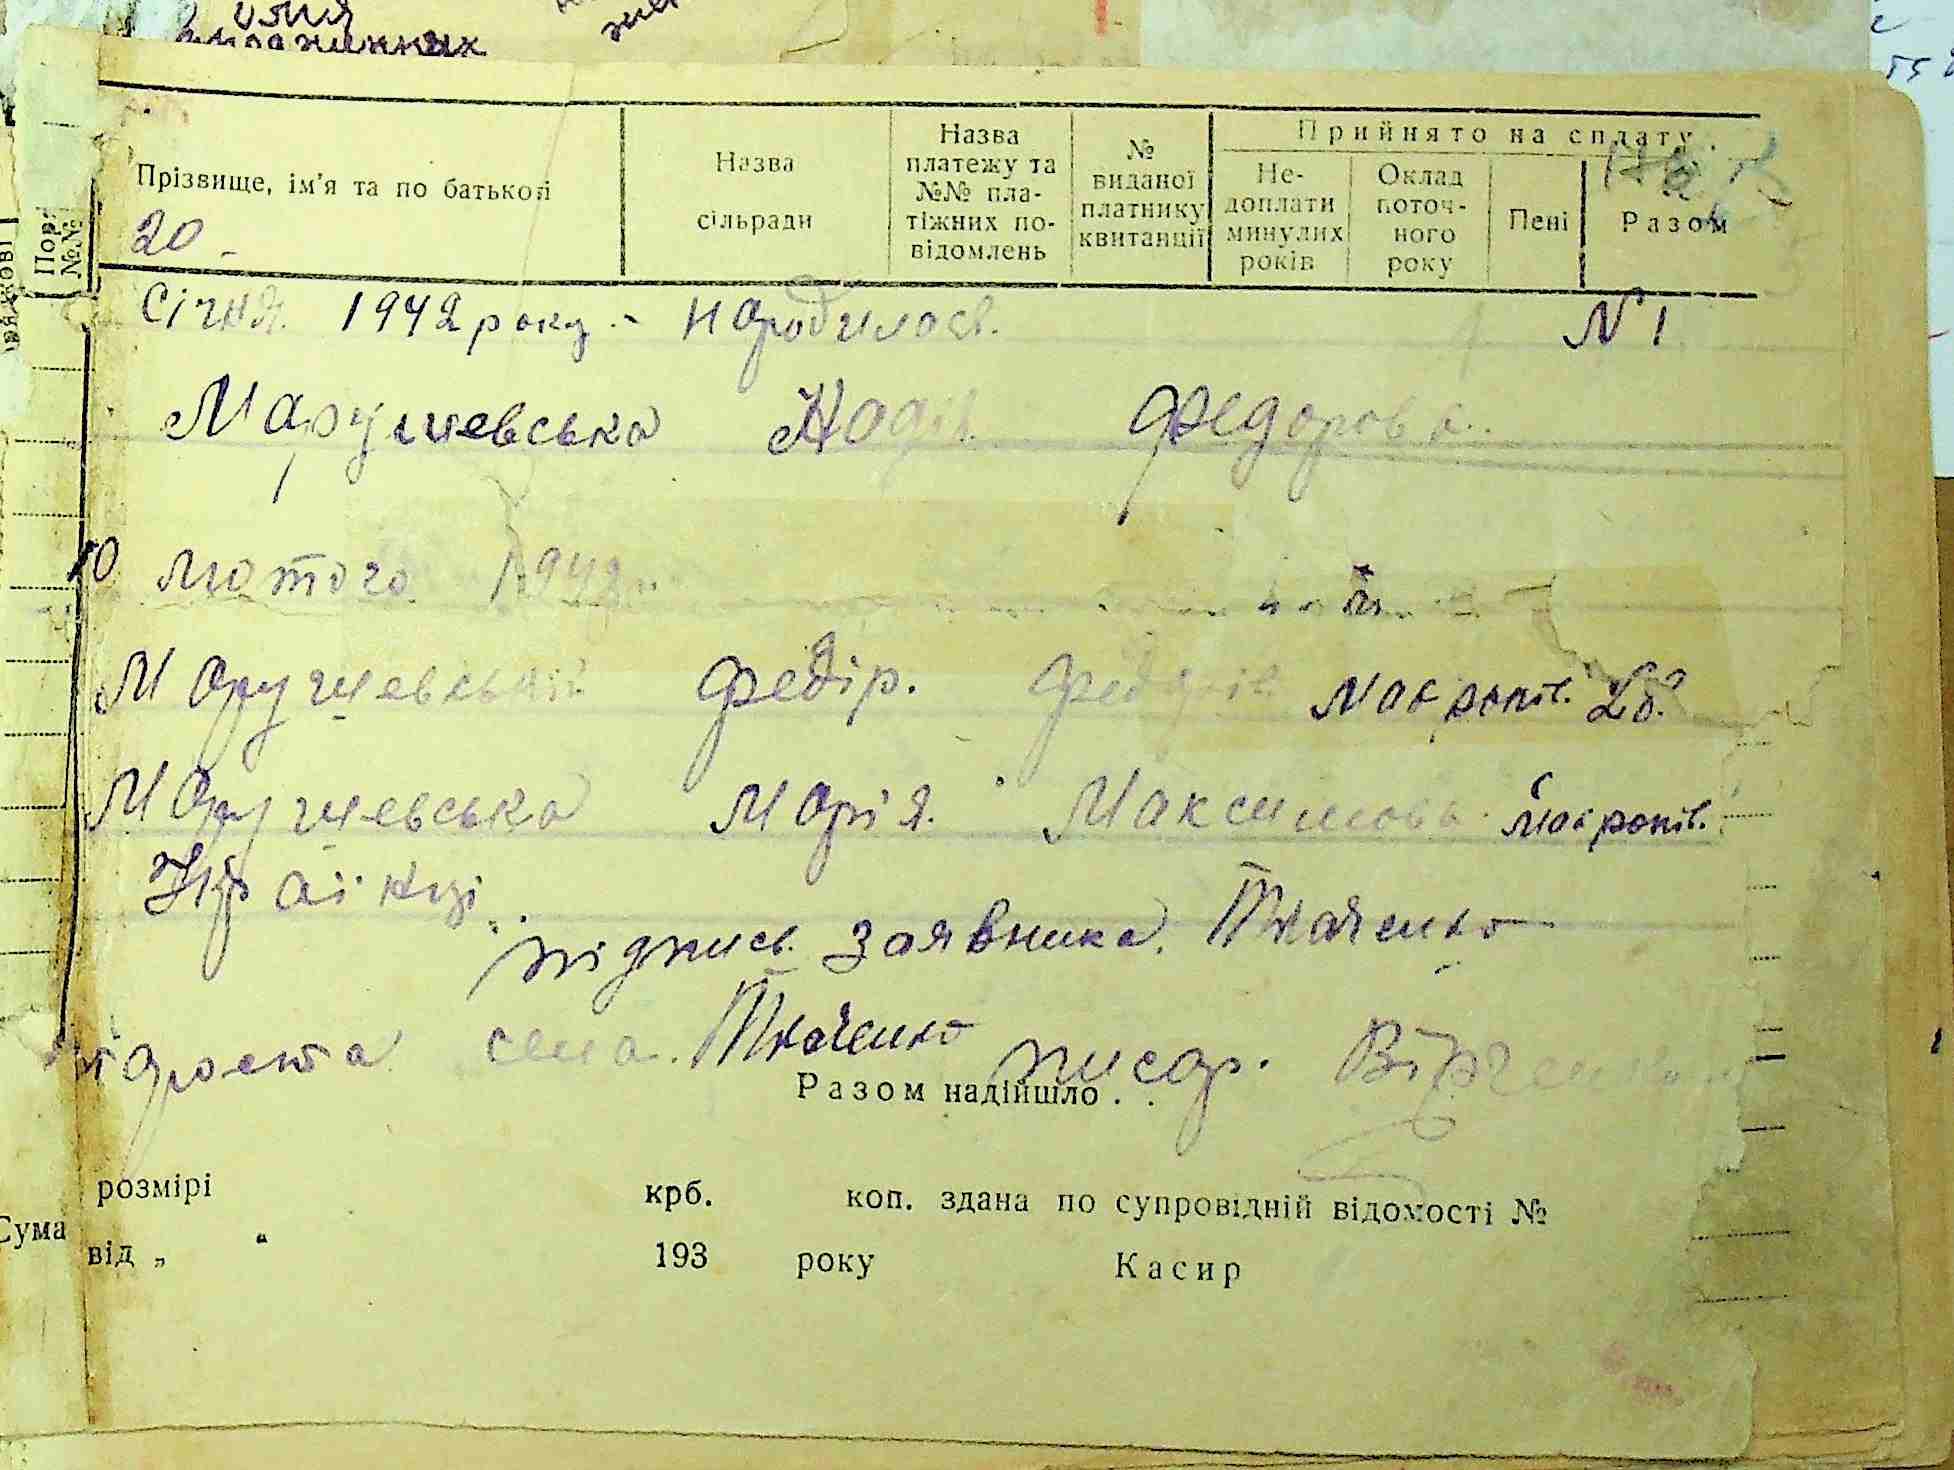 олія
Прийнято на сплату.
Прізвище, ім'я та по батькові
Назва сільради
Назва платежу та №№ пла-тіжних по-відомлень
№ виданої платнику квитанції
Не-доплати минулих років
Оклад поточ-ного року
Пені
Разом
Пор. №№
20 -
Січня. 1942 року. - народилось. N 1
Марушевська Надія Федорова.
10 лютого 1942
Марушевський Федір. Федорів
Марушевська Марія. Максимова.
Українці.
підпись. заявника. Ткаченко
староста села. Ткаченко писар.
Разом надійшло . .
розмірі крб. коп. здана по супровідній відомості №
Сума
від „ “ 193 року Касир